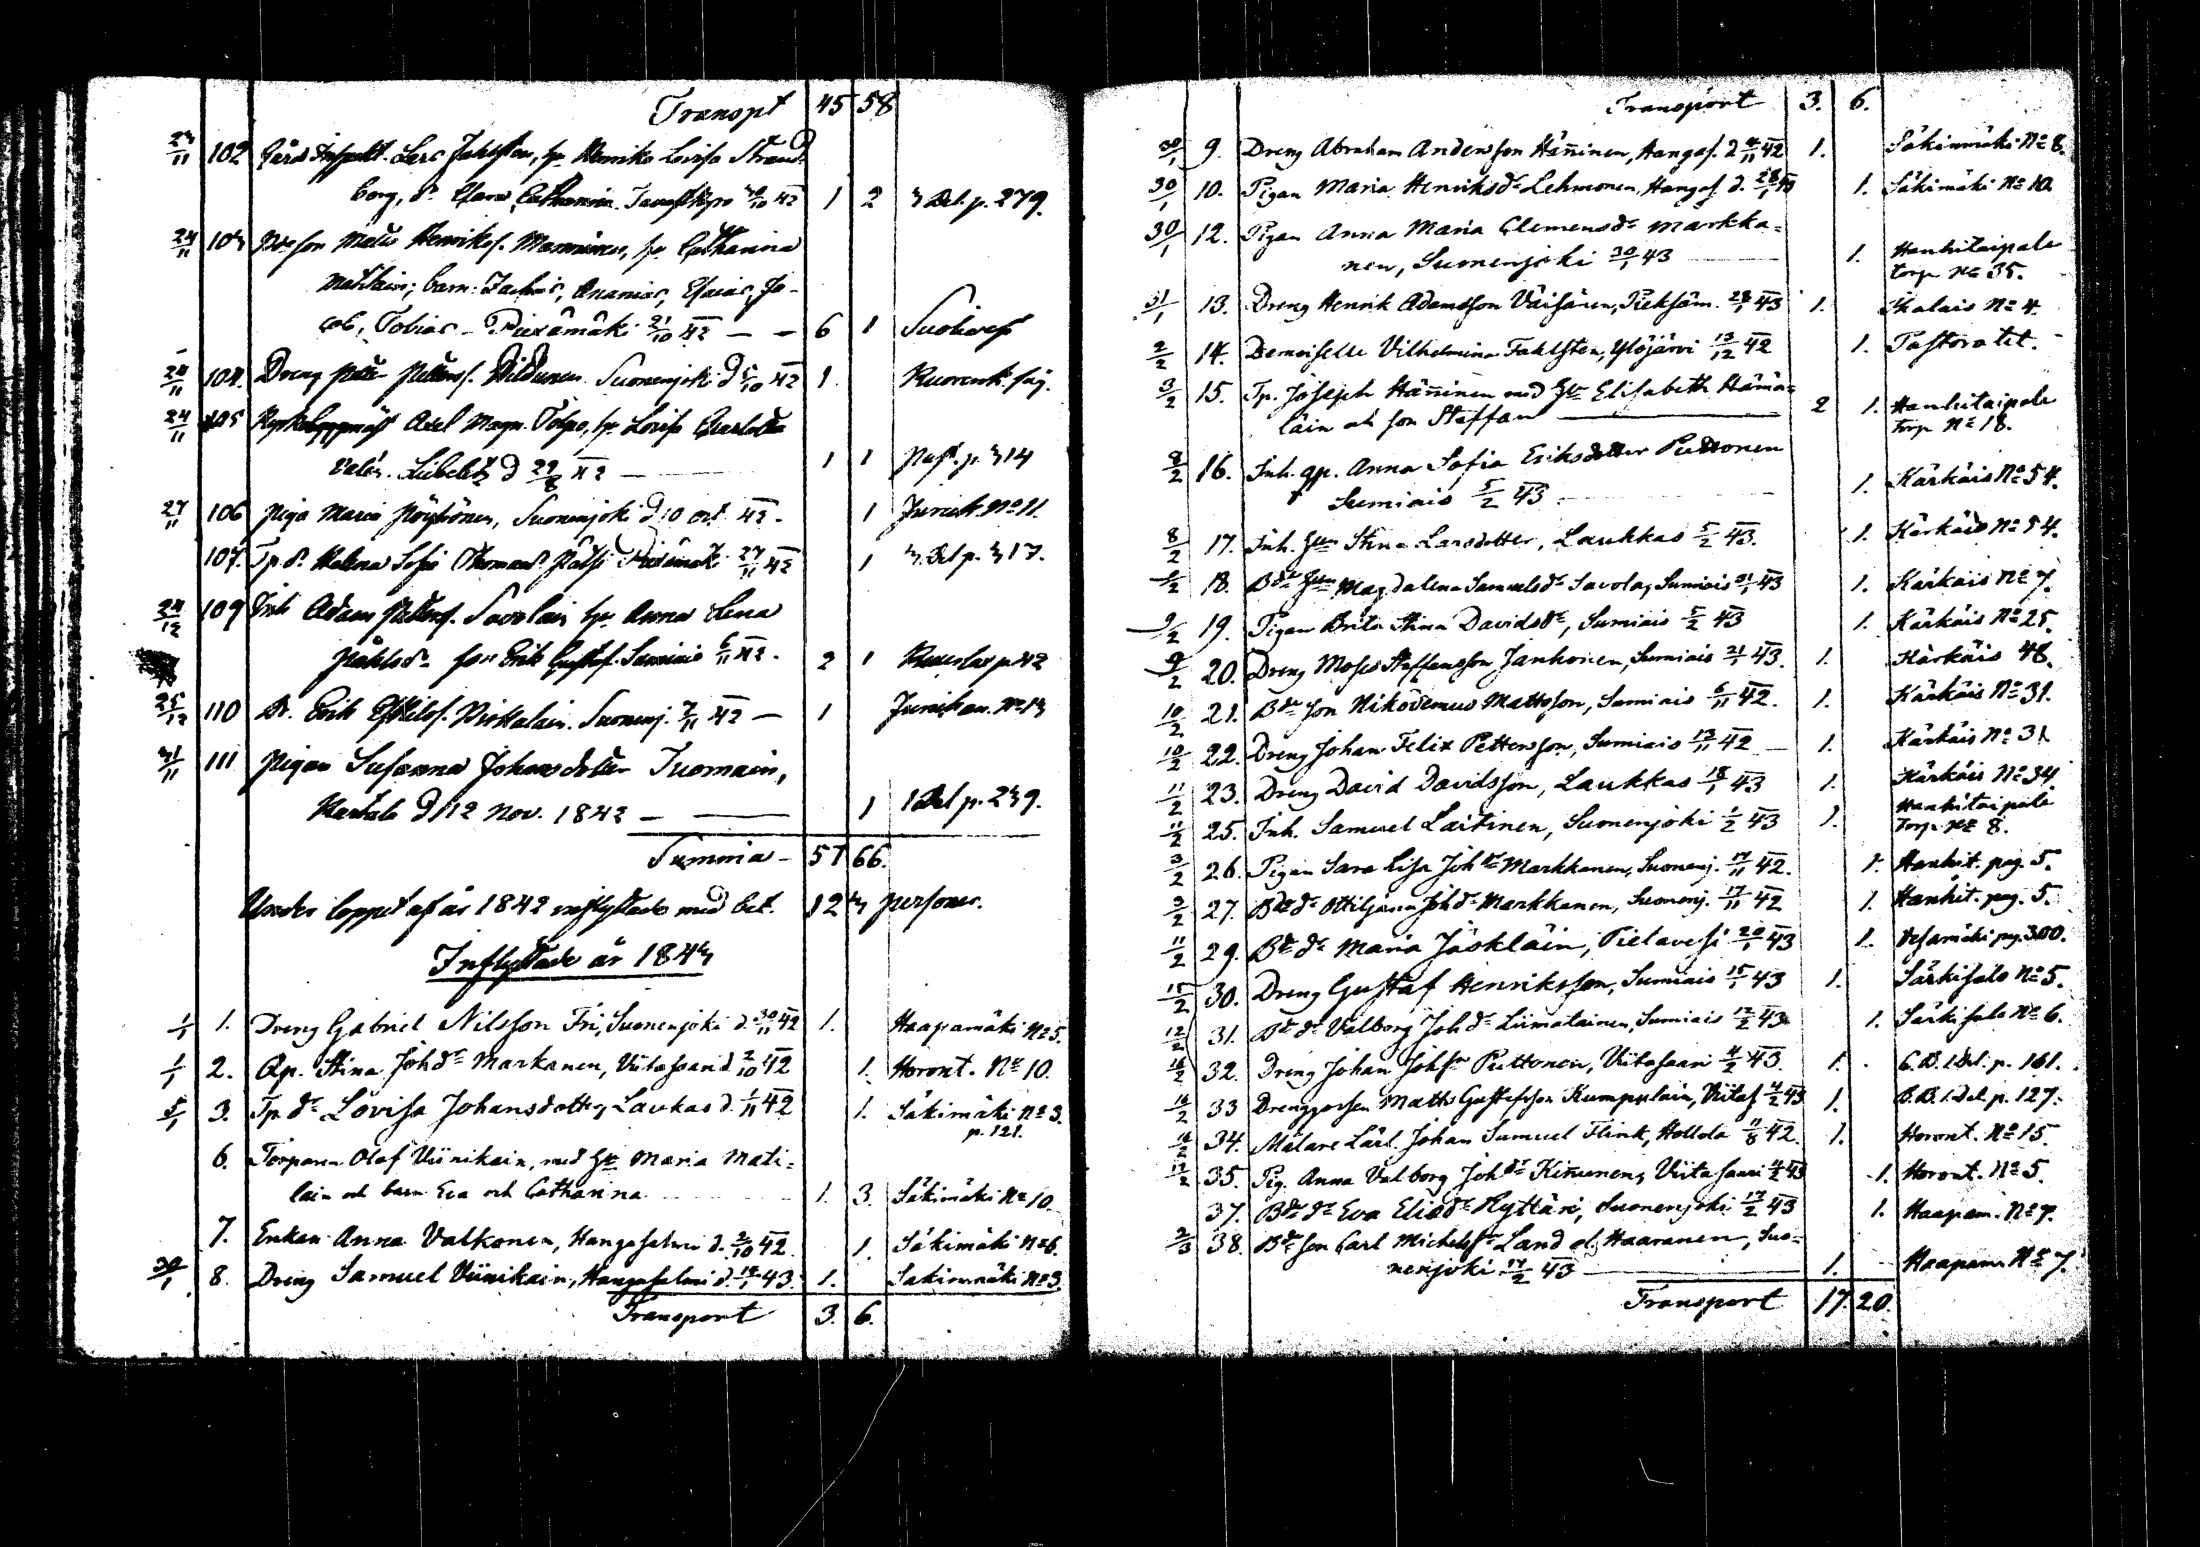 Transpt 45 58
23/11 102 Gårds Inspekt. Lars Fahlsten, hu Henrika Lovisa Strand-
borg, dr Clara Catharina Tavastkyro 30/10 42 1 2 3 Del p. 279.
24/11 103 Prsson Matts Henriks. Manninen, hu Catharina
Mattlain; barn: Zachris, Ananias, Esaias, Ja-
cob, Tobias - Piexämäki 21/10 42 — — 6 1
24/11 104 Dreng Petter Petterss. Suonenjoki d 5/10 42 1
24/11 105 Axel Magn. hu Lovisa Charlotta
Libelitz d 29/8 42 — 1 1 p. 314
27/11 106 Piga Maria Pöyhönen, Suonenjoki d 10 oct 42. 1 No 11.
107. Tp dr Helena Sofia Thomasdr 27/11 42 1 3 Del p. 317.
24/12 109 Inh Adam Petterss. Savolain hu Anna Lena
Påhlsdr son Erik Gustaf. Sumiais 6/11 42. 2 1 p 42
25/12 110 Dr. Erik Eskilss. Pirkalain. Suonenj. 7/11 42 — 1 No 13
31/11 111 Pigan Susanna Johansdotter Tuomain,
Karttula d 12 Nov. 1842 — 1 1 Del p. 239.
Summa - 57 66.
Under loppet af år 1842 inflyttade med bet. 123 personer.
Inflyttade år 1843
1/1 1. Dreng Gabriel Nilsson Fri, Suonenjoki d. 30/11 42 1. Haapamäki No 5.
1/1 2. Qp. Stina Johdr Markanen, Viitasaari d 2/10 42 1. Horont. No 10.
5/1 3. Tp dr Lovisa Johansdotter, Laukas d. 1/11 42 1. Säkimäki No 3.
p. 121.
6. Torparen Olof Viinikain, med Hu Maria Mati-
lain och barn Eva och Catharina 1. 3. Säkimäki No 10.
7. Enkan Anna Valkonen, Hangasalmi d. 2/10 42 1. Säkimäki No 6.
30/1 8. Dreng Samuel Viinikain, Hangasalmi d. 14/1 43. 1. Sakinmäki No 3.
Transport 3. 6.
Transport 3. 6.
30/1 9. Dreng Abraham Andersson Häninen, Hangas. d 4/11 42 1. Säkinmäki No 8.
30/1 10. Pigan Maria Henriksdr Lehmonen, Hangas. d. 28/1 43 1. Säkimäki No 10.
30/1 12. Pigan Anna Maria Clemensdr Markka-
nen, Suonenjoki 30/1 43 — 1. Hankitaipale
torp No 35.
31/1 13. Dreng Henrik Adamsson Väisänen, Pieksäm. 28/1 43 1. No 4.
2/2 14. Demoiselle Vilhelmina Fahlsten, Ylöjärvi 13/12 42 1. Pastoratet.
3/2 15. Tp. Joseph Häninen med Hu Elisabeth Hämä-
läin och son Staffan — 2 1. Hankitaipale
torp No 18.
8/2 16. Inh. qp. Anna Sofia Eriksdotter Puttonen
Sumiais 5/2 43. 1. Kärkäis No 54.
8/2 17. Inh. Hu Stina Larsdotter, Laukkas 5/2 43. 1. Kärkäis No 54.
9/2 18. Bde Hu Magdalena Samuelsdr Savola, Sumiais 31/1 43 1. Kärkäis No 7.
9/2 19. Pigan Brita Stina Davidsdr, Sumiais 5/2 43 1. Kärkäis No 25.
9/2 20. Dreng Moses Staffansson Janhonen, Sumiais 21/1 43. 1. Kärkäis 48.
10/2 21. Bde son Nikodemus Mattsson, Sumiais 6/11 42. 1. Kärkäis No 31.
10/2 22. Dreng Johan Felix Pettersson, Sumiais 13/11 42 — 1. Kärkäis No 31
11/2 23. Dreng David Davidsson, Laukkas 18/1 43 1. Kärkäis No 34
11/2 25. Inh. Samuel Laitinen, Suonenjoki 1/2 43 1. Hankitaipale
torp No 8.
3/2 26. Pigan Sara Lisa Johdr Markkanen, Suonenj. 17/11 42. 1. Hankit. pag. 5.
3/2 27. Bde dr Ottiljana Johdr Markkanen, Suonenj. 17/11 42 1. Hankit. pag. 5.
11/2 29. Bde dr Maria Jäskläin, Pielavesi 20/1 43 1. Vesamäki pag. 300.
15/2 30. Dreng Gustaf Henriksson, Sumiais 15/1 43 1. Särkisalo No 5.
12/2 31. Bde dr Valborg Joh dr Liimatainen, Sumiais 12/2 43 1. Särkisalo No 6.
16/2 32. Dreng Johan Johsn Puttonen, Viitasaari 4/2 43. 1. 1 Del. p. 161.
16/2 33 Drenggossen Matts Gustafsson Kumpulain, Viitas. 4/2 43 1. 1. Del. p. 127.
16/2 34. Målare Lärl. Johan Samuel Flink, Hollola 11/8 42. 1. Horont. No 15.
17/2 35. Pig. Anna Valborg Johdr Kinunen, Viitasaari 4/2 43 1. Horont. No 5.
37. Bde dr Eva Eliædr Hyttäri, Suonenjoki 17/2 43 1. Haapam. No 7.
2/3 38. Bde son Carl Michelss Land el. Haaranen, Suo-
nenjoki 17/2 43 — 1. Haapam. No 7.
Transport 17. 20.